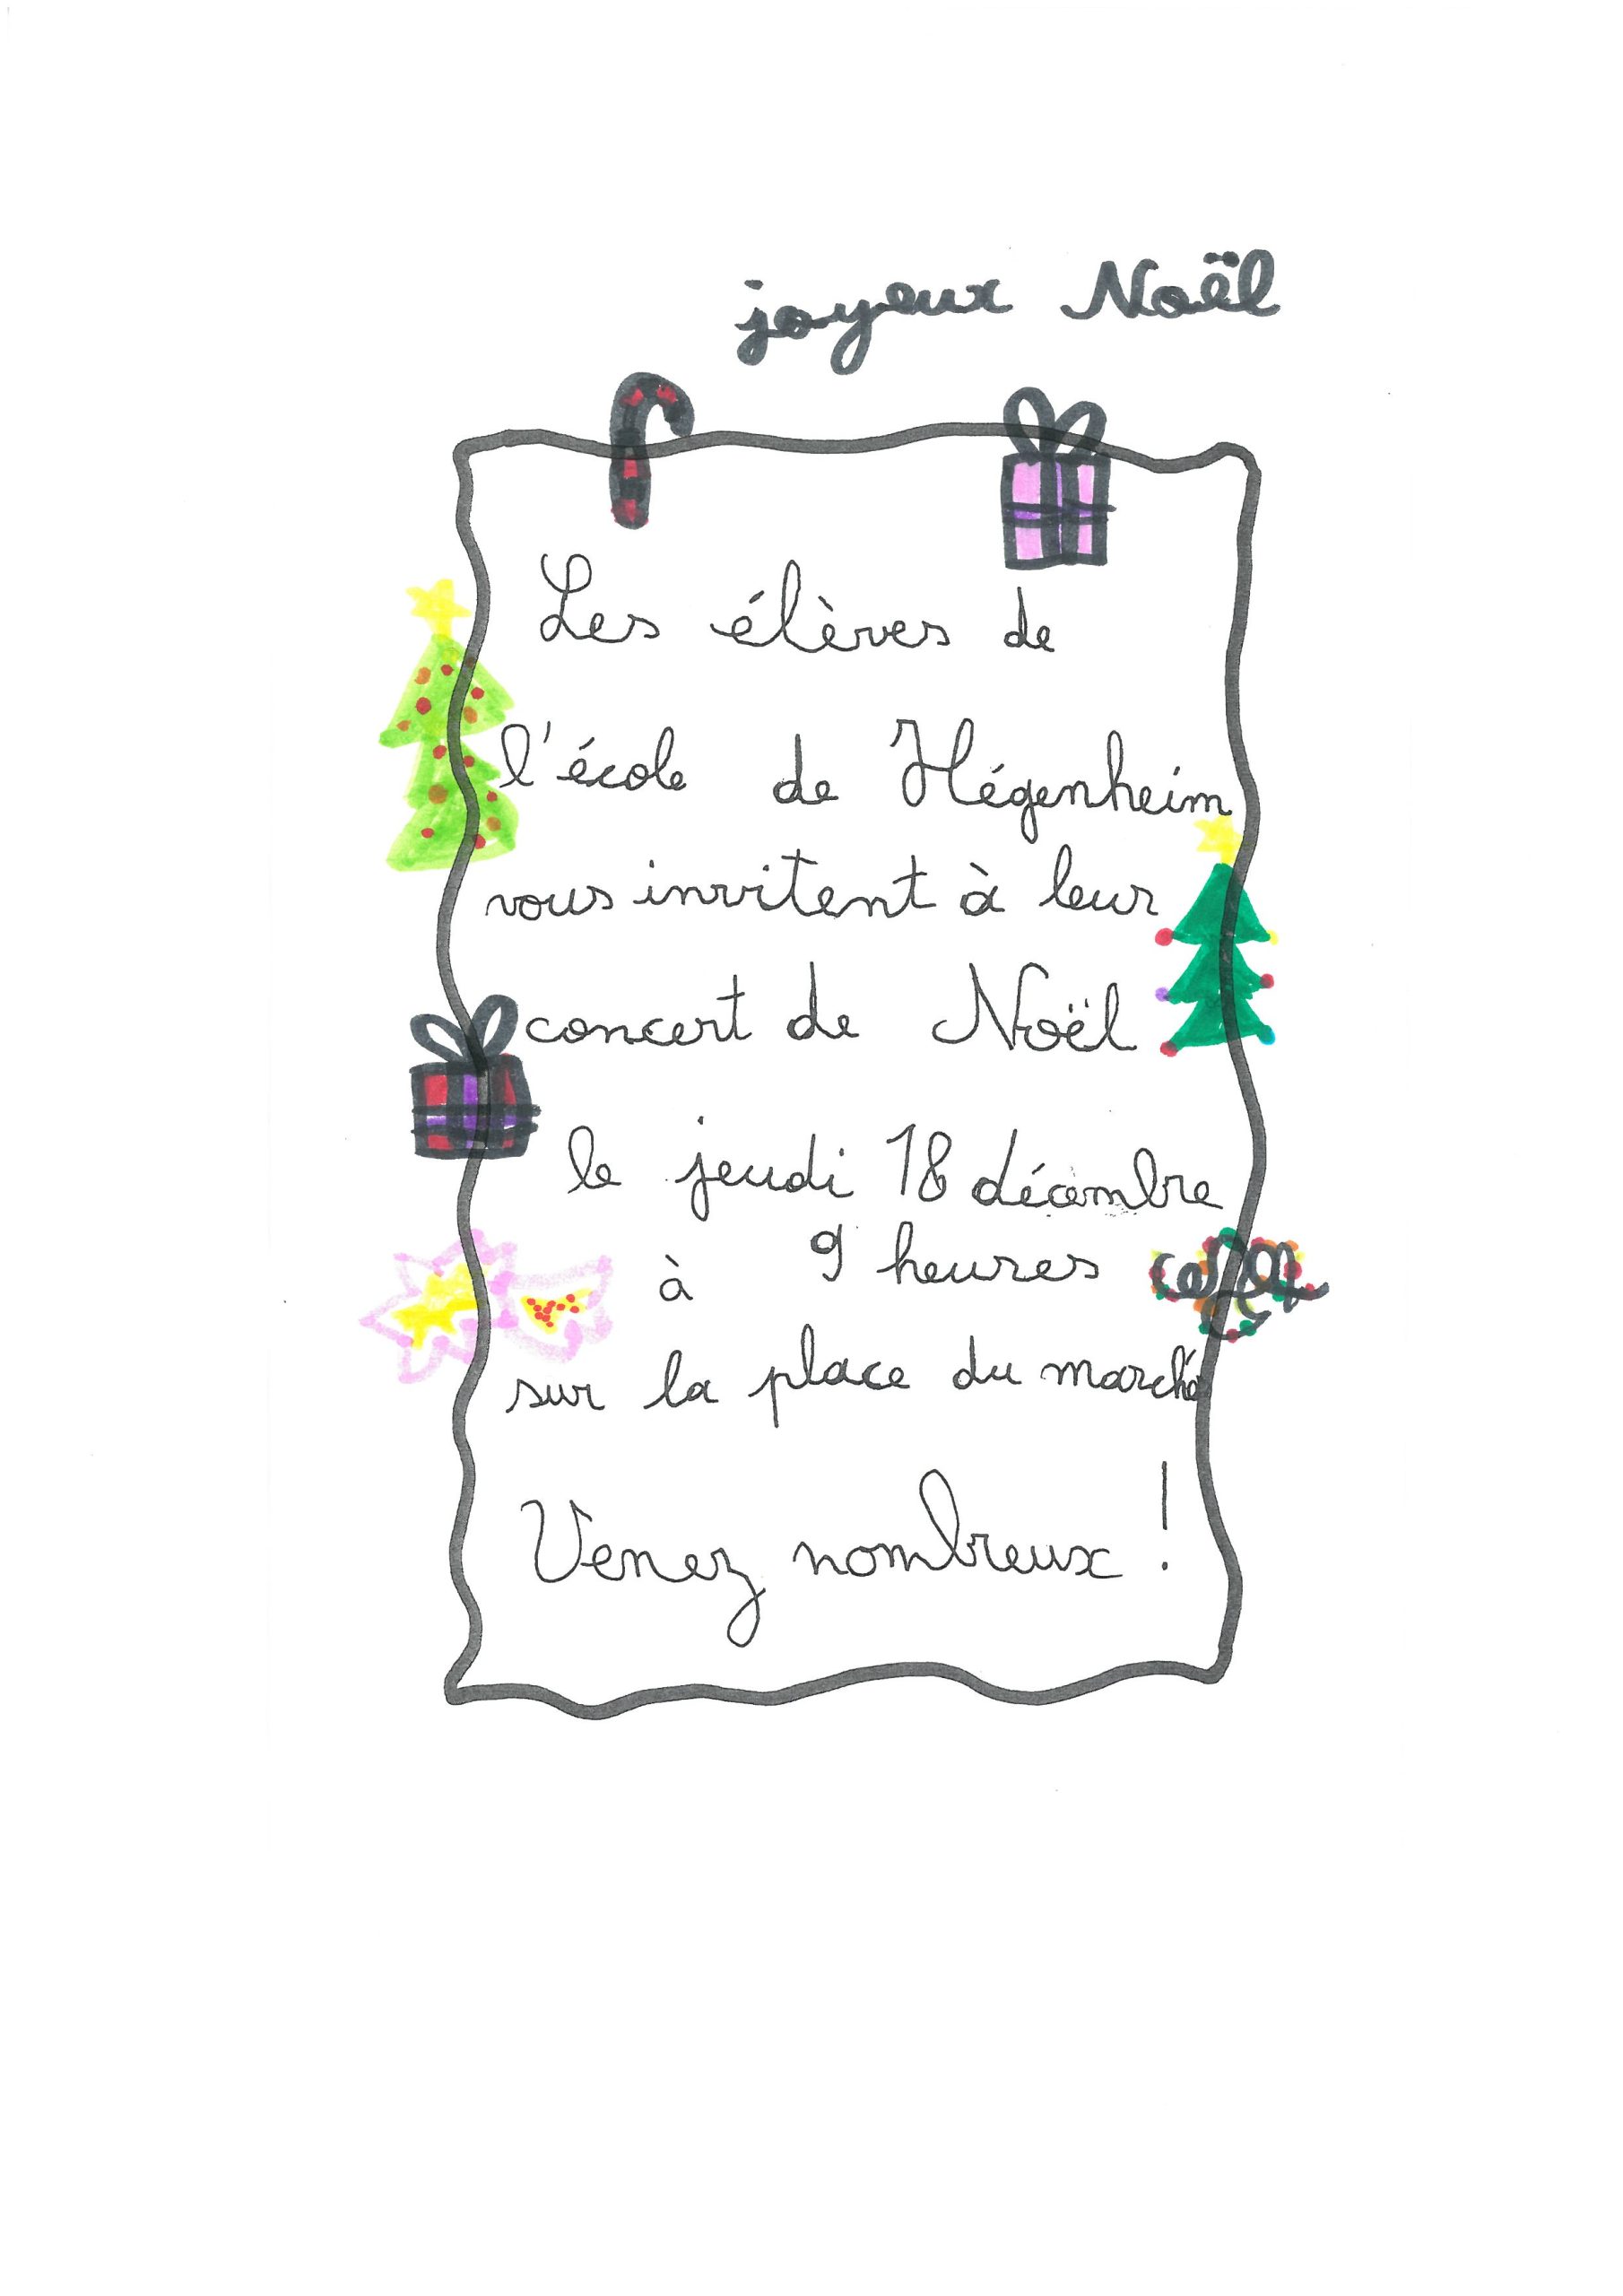 joyeux Noël
Les élèves de
l'école de Hégenheim
vous invitent à leur
concert de Noël
le jeudi 18 décembre
à 9 heures
sur la place du marché
Venez nombreux !